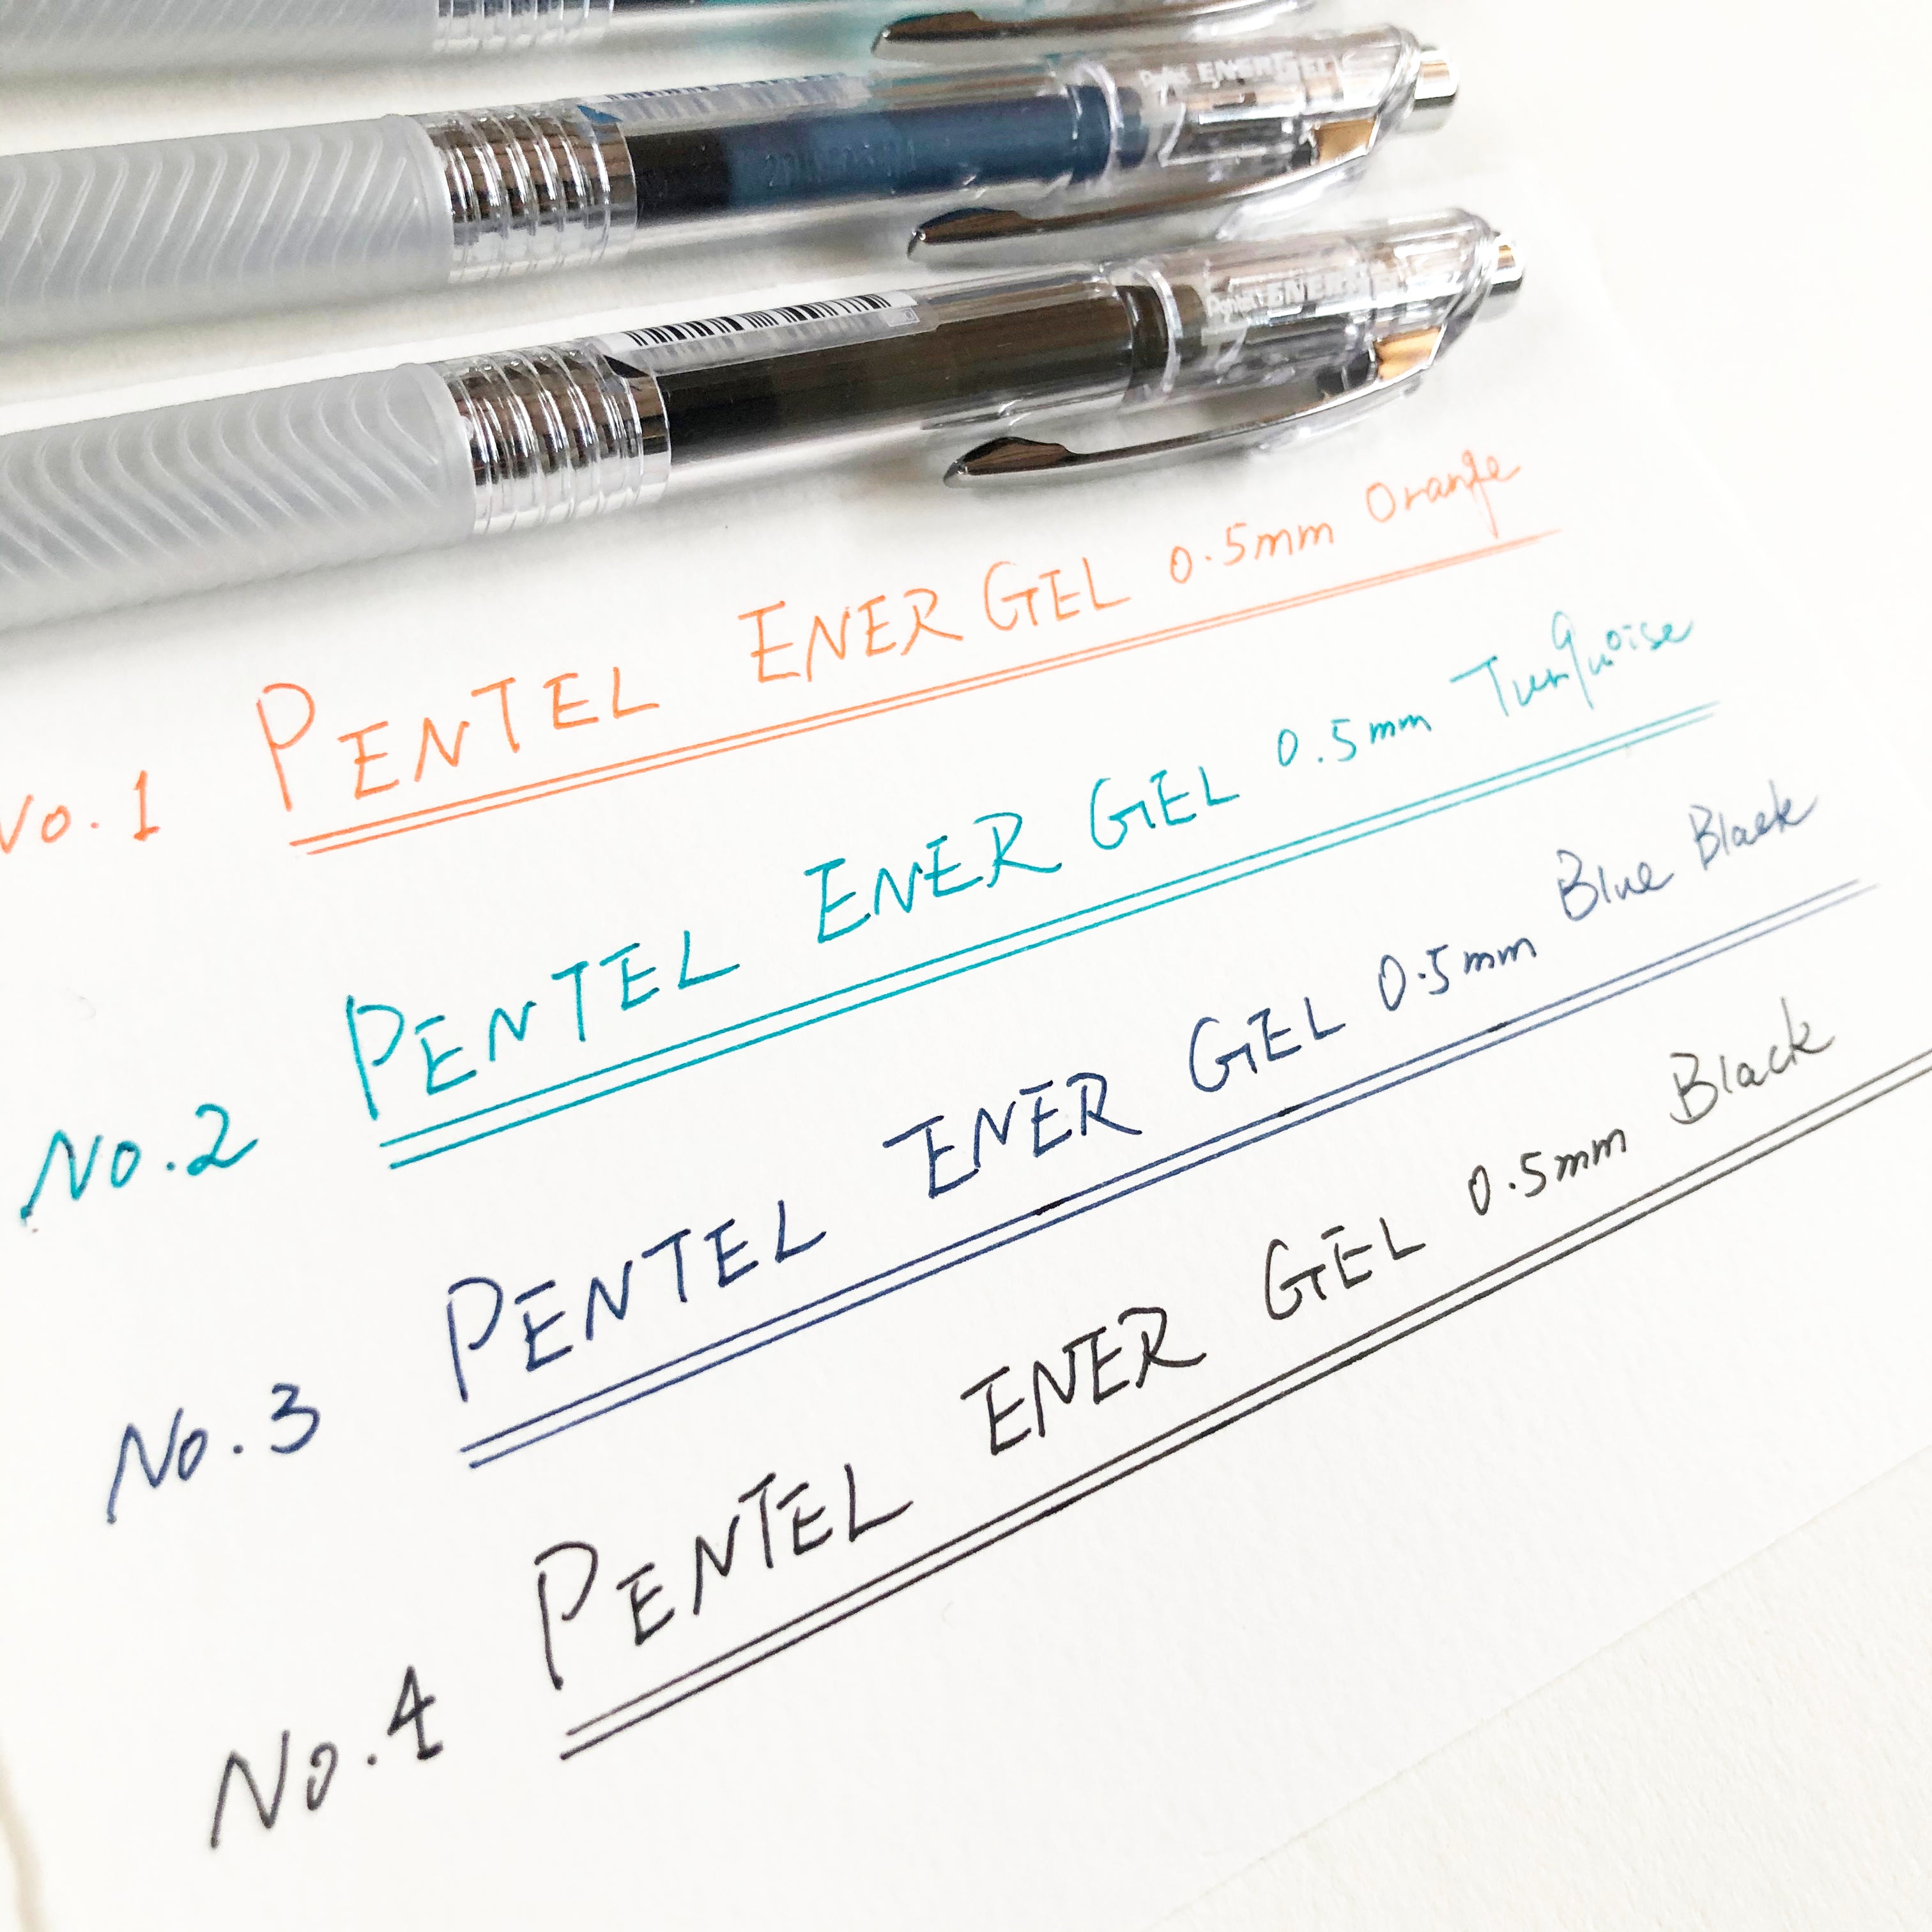 Pentel ENERGEL
Pentel ENERGEL
No. 1 PENTEL ENER GEL 0.5mm Orange
No. 2 PENTEL ENER GEL 0.5mm Turquoise
No. 3 PENTEL ENER GEL 0.5mm Blue Black
No. 4 PENTEL ENER GEL 0.5mm Black